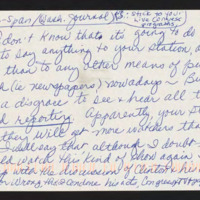 -Span/Wash. Journal P.S.: stick to your
Live Congress
programs
don't know that its going to do
to say anything to your station, a
than to any other means of pu
h (ie newspapers) nowadays - Bu
a disgrace to see & hear all t
d reporting. Apparently your st
ther will get more watchers tha
I will say that although I doubt
ld watch this kind of show again
up with the discussion of Clinton & his
for wrong. He & condone his acts, Congress